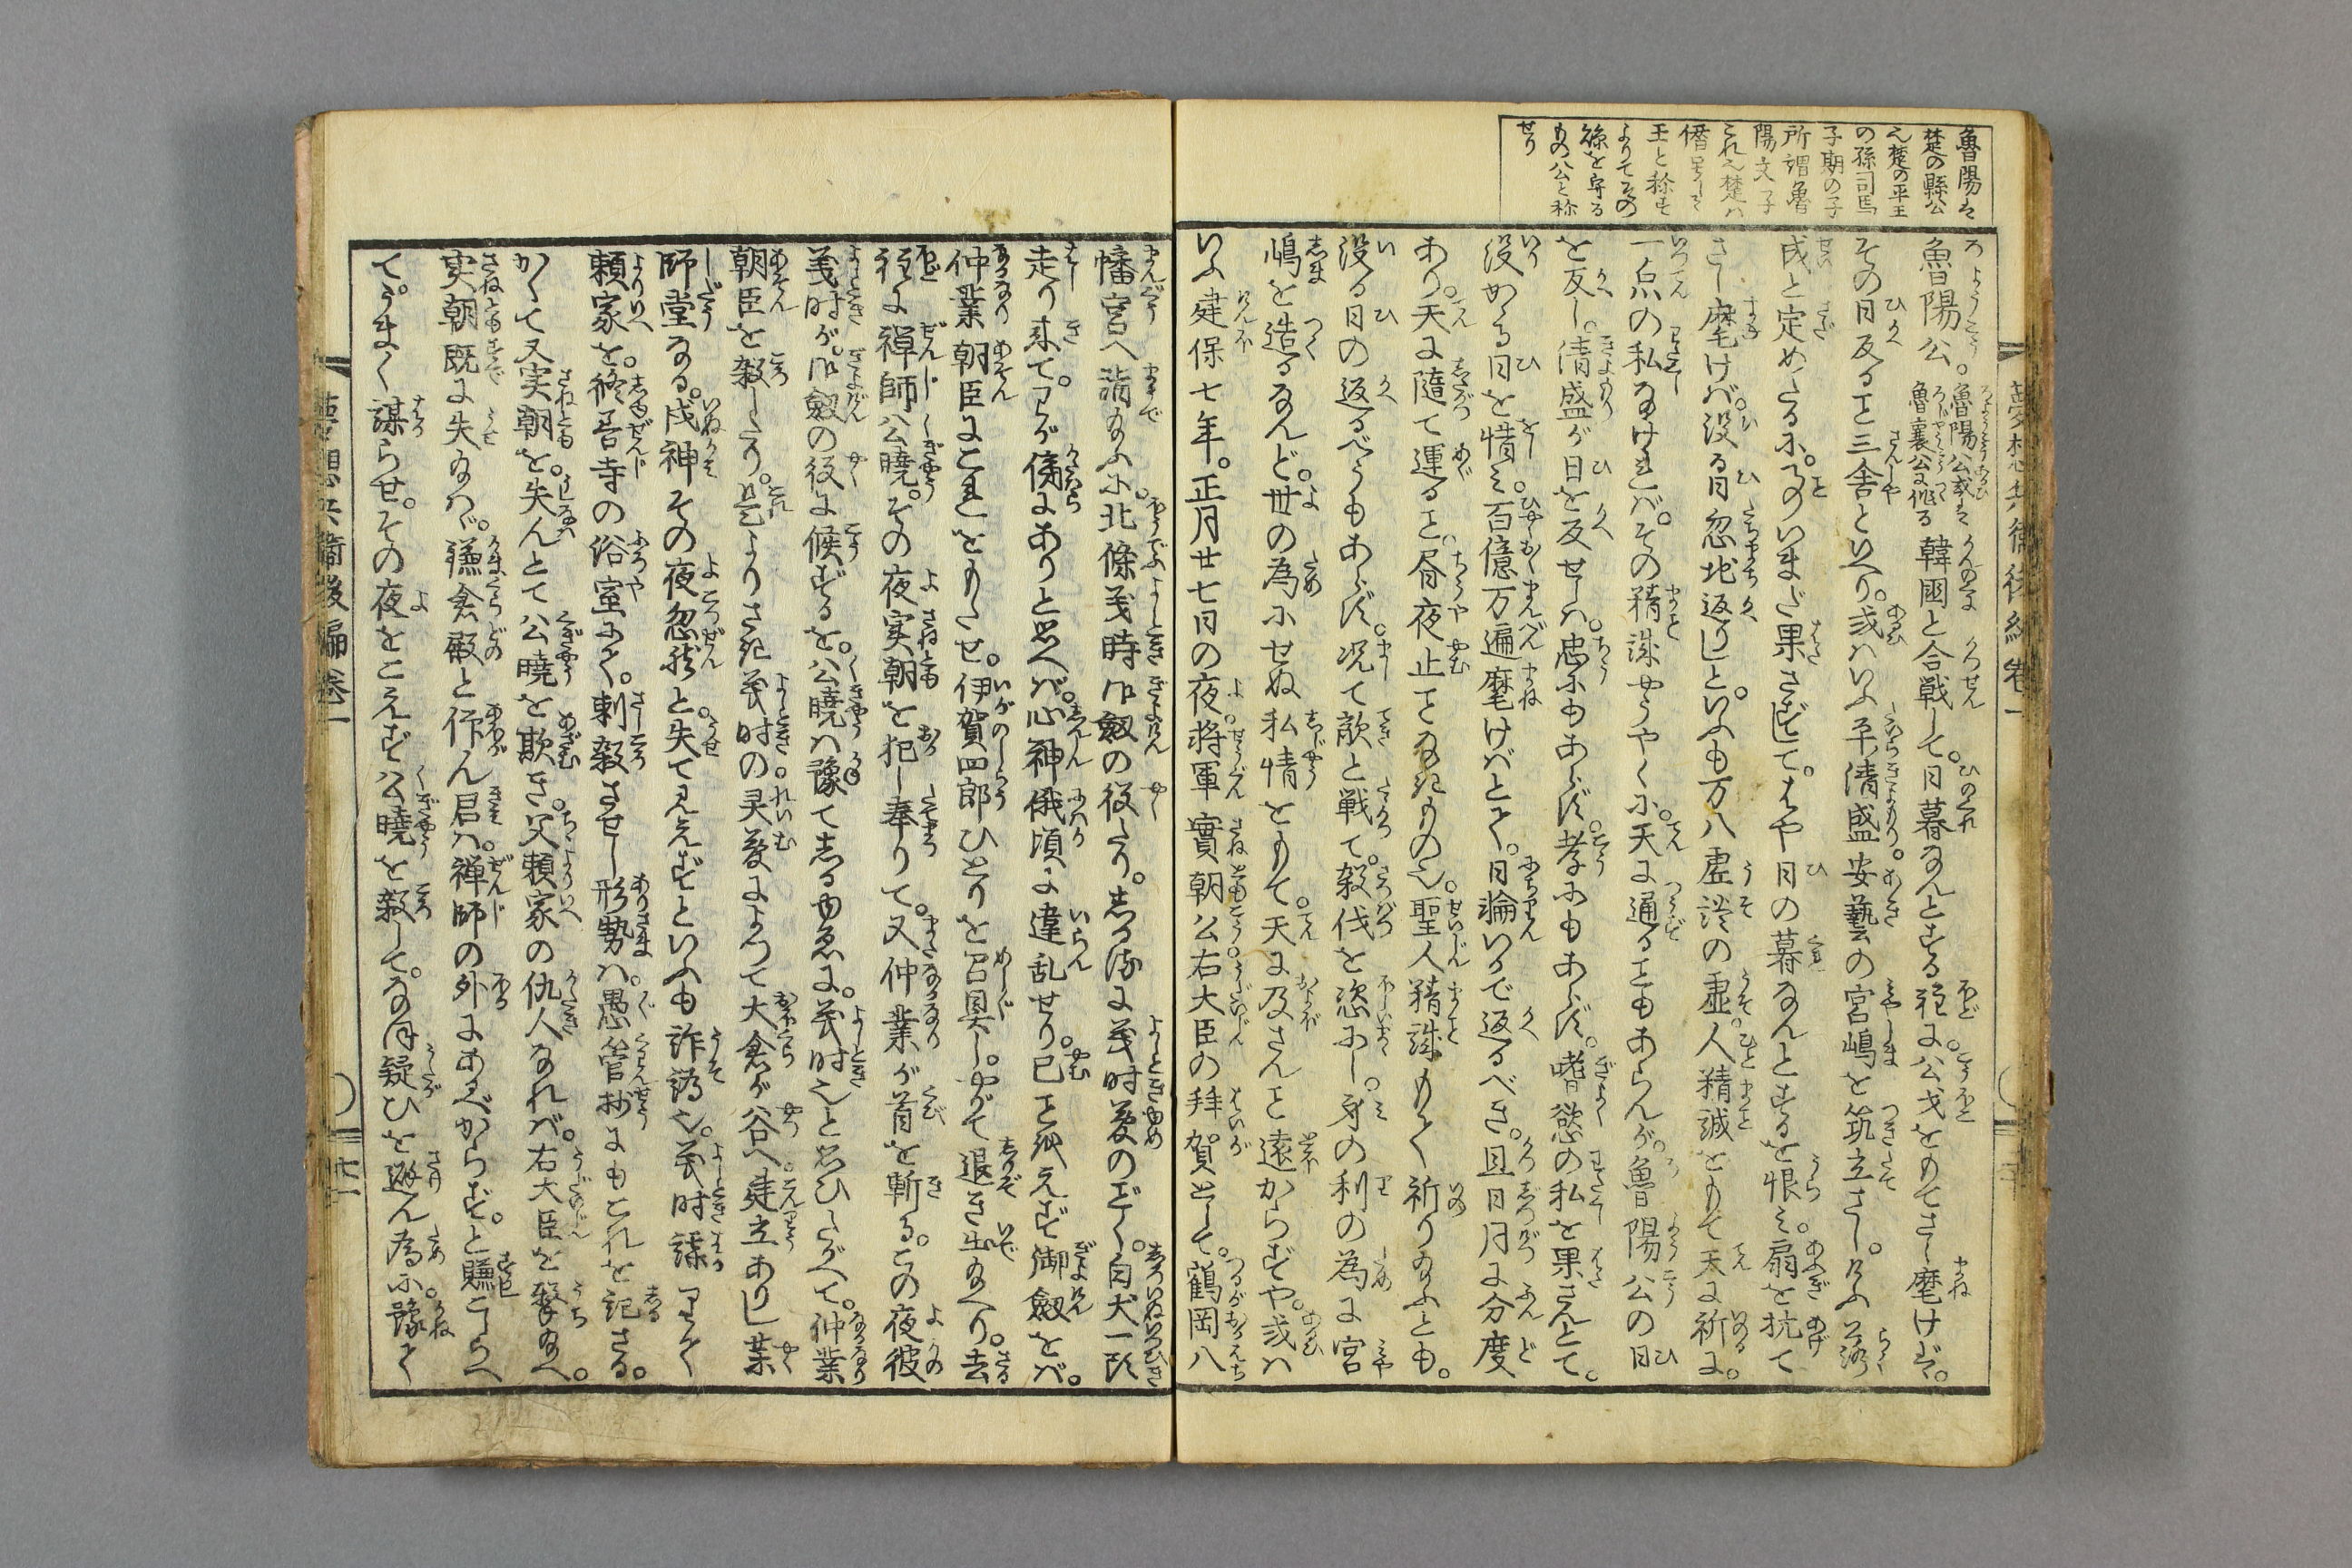 魯陽は
楚の縣公
也楚の平王
の孫司馬
子期の子
所謂魯
陽文子
これ也楚ハ
僭号して
王と称す
よりてその
縣を守る
もの公と称
せり
魯陽公。魯陽公或は魯襄公に作る韓國と合戦して。日暮なんとする程に。公戈をもてさし麾けば。
その日反ること三舎といへり。或ハいふ平清盛。安藝の宮嶋を筑立さし。けふ落
成と定めたるに。ことのいまだ果さずして。はや日の暮なんとするを恨み。扇を抗て
さし麾けバ。没る日忽地返りしと。いふも万八虚談の虚。人精誠をもて天に祈るに。
一点の私なけれバ。その精誠やうやくに。天に通ることもあらんが。魯陽公の日
を反し。清盛が日を反せしハ。忠にもあらず。孝にもあらず。嗜慾の私を果さんとて。
没かゝる日を惜み。百億万遍麾けばとて。日輪いかで返るべき。且日月に分度
あり。天に隨て運ること。昼夜止ことなきもの也。聖人精誠もて祈り給ふとも。
没る日の返るべうもあらず。况て敵と戦て。殺伐を恣にし。身の利の為に宮
嶋を造るなんど。世の為にせぬ私情をもて。天に及さんこと遠からずや。或ハ
いふ建保七年。正月廿七日の夜。将軍實朝公右大臣の拜賀として。鶴岡八
幡宮へ詣給ふに。北條義時御劔の役たり。しかるに義時夢のごとく。白犬一頭
走り来て。わが傍にありと思へバ。心神俄頃に違乱せり。已ことを得ず御劔をバ。
仲業朝臣にこれをもたせ。伊賀四郎ひとりを召具し。やがて退き出給へり。去
程に禅師公曉。その夜実朝を犯し奉りて。又仲業が首を斬る。この夜彼
義时が。御劔の役に候ずるを。公曉ハ豫てしるゆゑに。義时也と思ひたがへて。仲業
朝臣を殺したり。是よりさき義时の。灵夢によつて大倉が谷へ。建立ありし薬
師堂なる。戌神その夜忽然と。失て見えずといふも詐譌也。義时謀りて
頼家を。修善寺の俗室にて。刺殺させし形勢ハ。愚管抄にもこれを記さる。
かくて又実朝を。失んとて公曉を欺き。父頼家の仇人なれバ。右大臣を撃給へ。
実朝既に失給はゞ。鎌倉殿と仰ん君ハ。禅師の外にあるべからず。と賺こしらへ
て。うまく謀らせ。その夜をこえず公曉を殺して。なほ疑ひを避ん為に。豫て
夢想兵衛後編巻一